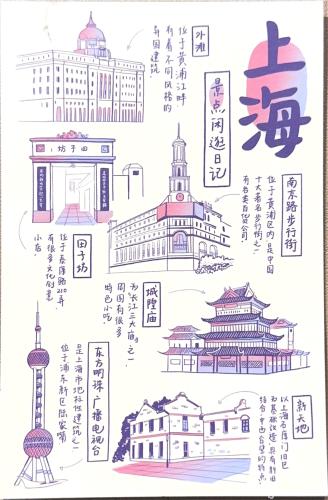 上海
景点闲逛日记
外滩
位于黄浦江畔
有着不同风格的
异国建筑
田子坊
南京路步行街
位于黄浦区内,是中国
十大著名步行街之一
有各类百货公司
田子坊
位于泰康路210弄
有很多文化创意
小店
城隍庙
为“长江三大庙”之一
周围有很多
特色小吃
东方明珠广播电视台
是上海市地标性建筑之一
位于浦东新区陆家嘴
新天地
以上海石库门旧区
为基础改造,具有新旧
结合、中西合璧的特点